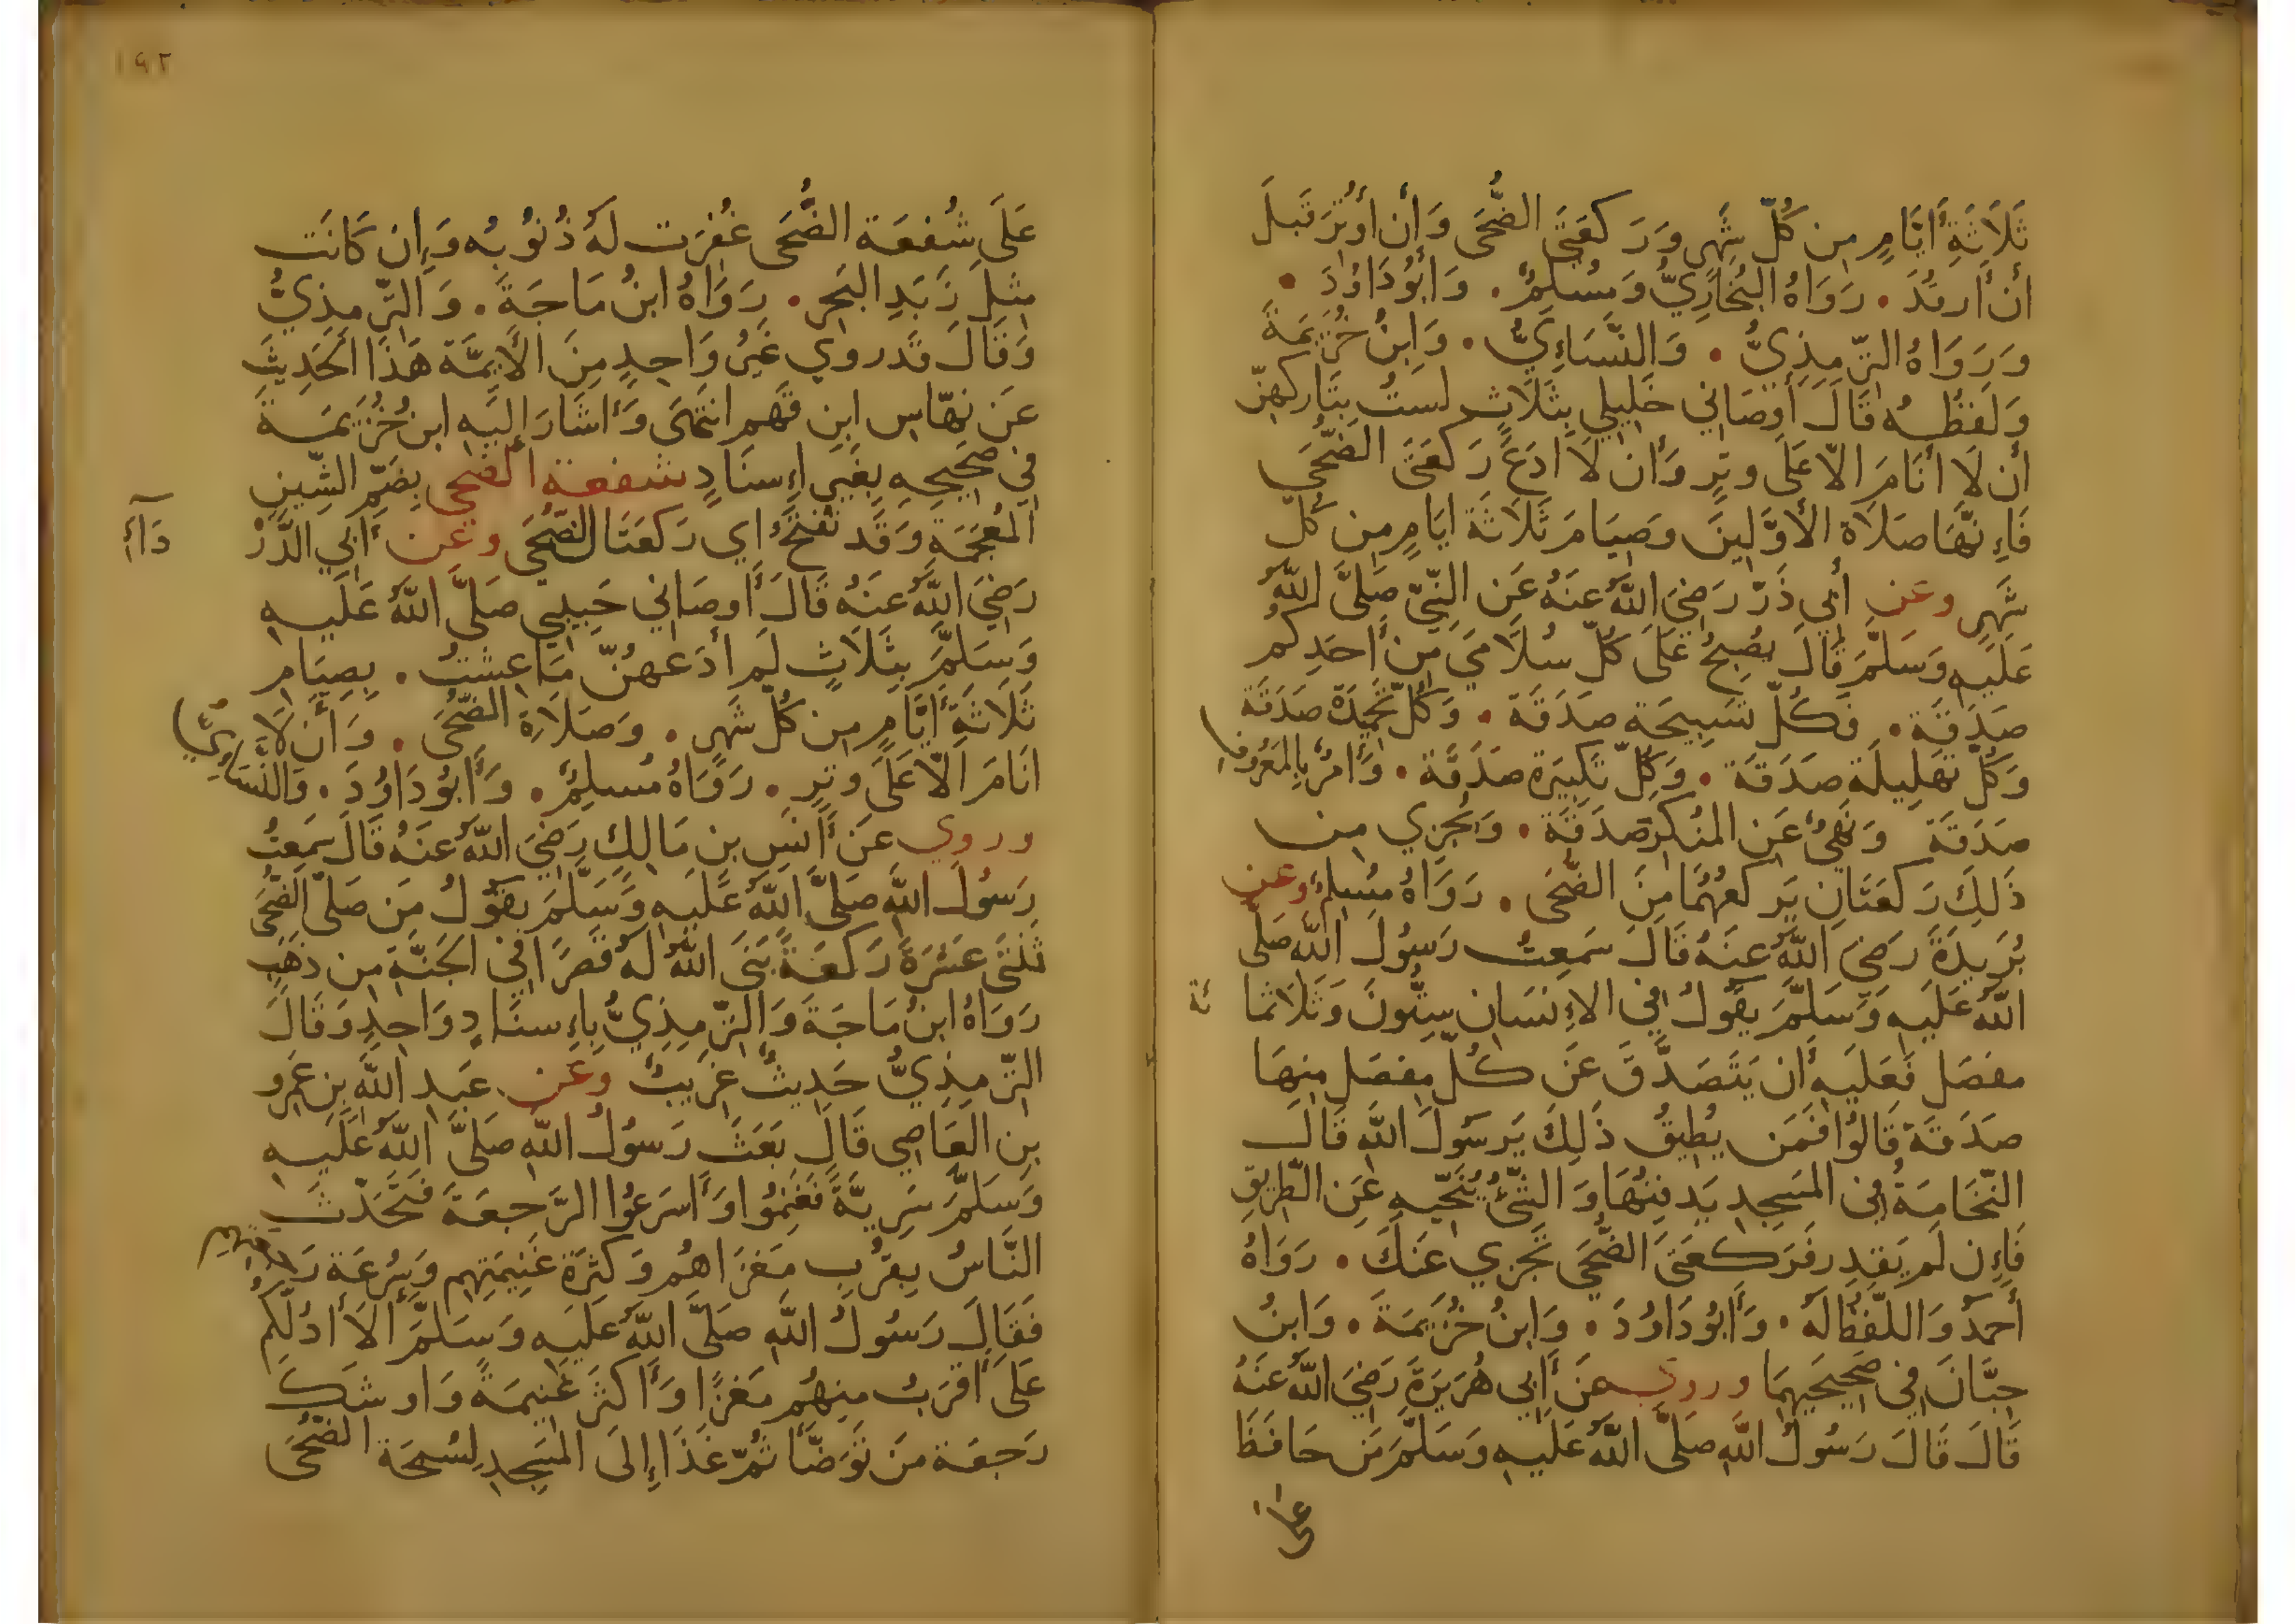 ثَلَاثَةِ أَيَّامٍ مِن كُلِّ شَهرٍ وَرَكعَتَي الضُّحَى وَأَن أُوتِرَ قَبلَ
أَن أَرقُدَ . رَوَاهُ البُخَارِيُّ وَمُسلِمٌ . وَأَبُو دَاوُدَ .
وَرَوَاهُ التِّرمِذِيُّ . وَالنَّسَاءِيُّ . وَابنُ خُزَيمَةَ
وَلَفظُهُ قَالَ أَوصَانِي خَلِيلِي بِثَلَاثٍ لَستُ بِتَارِكِهِنّ
أَن لَا أَنَامَ الّا عَلَى وِترٍ وَأَن لَا ادَعَ رَكعَتَي الضُّحَى
فَإِنَّهَا صَلَاة الأَوَّلِينَ وَصِيَامَ ثَلَاثَةَ ايَامٍ مِن كُلّ
شَهرٍ وعَن أَبِي ذَرّ رَضِيَ اللَّهُ عَنهُ عَن النَّبِيّ صَلَّى اللَّهُ
عَلَيهِ وَسَلَّمَ قَالَ يُصبِحُ عَلَى كُلّ سُلَامَى مِن أَحَدِكُم
صَدَقَة . فَكُلّ تَسبِيحَة صَدَقَة . وَكُلّ تَحمِيدَة صَدَقَة
وَكُلّ تَهلِيلَة صَدَقَة . وَكُلّ تَكبِيرَة صَدَقَة . وَأَمرٌ بِالمَعرُوفِ
صَدَقَة وَنَهيٌ عَن المُنكَرِ صَدَقَة . وَيُجزِي مِن
ذَلِكَ رَكعَتَانِ يَركَعُهُمَا مِنَ الضُّحَى . رَوَاهُ مُسلِمٌ وعَن
بُرَيدَةَ رَضِيَ اللَّهُ عَنهُ قَالَ سَمِعتُ رَسُولَ اللَّه صَلَّى
اللَّهُ عَلَيهِ وَسَلَّمَ يَقُولُ فِي الإِنسَانِ سِتُّونَ وَثَلَاثُمَا
ئة
مفصَل فَعَلَيهِ أَن يَتَصَدَّقَ عَن كُلّ مِفصَلٍ مِنهَا
صَدَقَة قَالُوا فَمَن يُطِيقُ ذَلِكَ يَرَسُولَ اللَّهِ قَالَ
النُّخَامَةُ فِي المَسجِدِ يَدفِنُهَا وَالشَّيءُ يُنَحِّيهِ عَنِ الطَّرِيقِ
فَإِن لَم يَقدِر فَرَكعَتَي الضُّحَى تُجزِي عَنكَ . رَوَاهُ
أَحمَدُ وَاللَّفظُ لَهُ . وَأَبُو دَاوُدَ . وَابنُ خُزَيمَةَ . وَابنُ
حِبَّانَ فِي صَحِيحَيهِمَا وروي عَن أَبِي هُرَيرَةَ رَضِيَ اللَّهُ عَنهُ
قَالَ قَالَ رَسُولُ اللَّهِ صَلَّى اللَّهُ عَلَيهِ وَسَلَّمَ مَن حَافَظَ
عَلَى
١٩٢
عَلَى شُفعَة الضُّحَى غُفِرَت لَهُ ذُنُوبُه وَإِن كَانَت
مِثلَ زَبَدِ البَحرِ . رَوَاهُ ابنُ مَاجَةَ . وَالتِّرمِذِيُّ
وَقَالَ قَد روي غَيرُ وَاحِدٍ مِنَ الأَيِمَّة هَذَا الحَدِيثَ
عَن نَهَّاسِ ابنِ قَهم انتَهَى وَأَشَارَ إِلَيهِ ابن خُزَيمَة
فِي صَحِيحِهِ بِغَيرِ إِسنَادٍ شفعة الضحى بِضَمِّ الشِّينِ
المُعجَمَة وَقَد تُفتَحُ اي رَكعَتَا الضُّحَى وعَن أَبِي الدَّرْ
دَآءِ
رَضِيَ اللَّهُ عَنهُ قَالَ أَوصَانِي حَبِيبِي صَلَّى اللَّهُ عَلَيهِ
وَسَلَّمَ بِثَلَاثٍ لَم أَدَعهُنّ مَا عِشتُ . بِصِيَامِ
ثَلَاثَةِ أَيَّامٍ مِن كُلّ شَهرٍ . وَصَلَاةِ الضُّحَى . وَأَن لَا
انَامَ الّا عَلَى وِترٍ . رَوَاهُ مُسلِمٌ . وَأَبُو دَاوُدَ . وَالنَّسَاءِيُّ
وروي عَن أَنَسِ بنِ مَالِكٍ رَضِيَ اللَّهُ عَنهُ قَالَ سَمِعتُ
رَسُولَ اللَّهِ صَلَّى اللَّهُ عَلَيهِ وَسَلَّمَ يَقُولُ مَن صَلَّى الضُّحَى
ثنتَي عَشرَةَ رَكعَةً بَنَى اللَّهُ لَهُ قَصرًا فِي الجَنَّةِ مِن ذَهَبٍ
رَوَاهُ ابنُ مَاجَةَ وَالتِّرمِذِيُّ بِإِسنَادٍ وَاحِدٍ وَقَالَ
التِّرمِذِيُّ حَدِيثٌ غَرِيبٌ وعَن عَبدِ اللَّهِ بنِ عَمرٍو
بنِ العَاصِي قَالَ بَعَثَ رَسُولُ اللَّهِ صَلَّى اللَّهُ عَلَيهِ
وَسَلَّمَ سَرِيَّةً فَغَنِمُوا وَأَسرَعُوا الرَّجعَةَ فَتَحَدَّثَ
النَّاسُ بِقُربِ مَغزَاهُم وَكَثرَة غَنِيمَتِهِم وَبِسُرعَة رَجعَتِهِم
فَقَالَ رَسُولُ اللَّهِ صَلَّى اللَّهُ عَلَيهِ وَسَلَّمَ الَا أَدُلُّكُم
عَلَى أَقرَبُ مِنهُم مَغزًا وَأَكثَرَ غَنِيمَةً وَاوشَكَ
رَجعَة مَن تَوَضَّأَ ثُمّ غَذَا إِلَى المَسجِدِ لِسُبحَة الضُّحَى